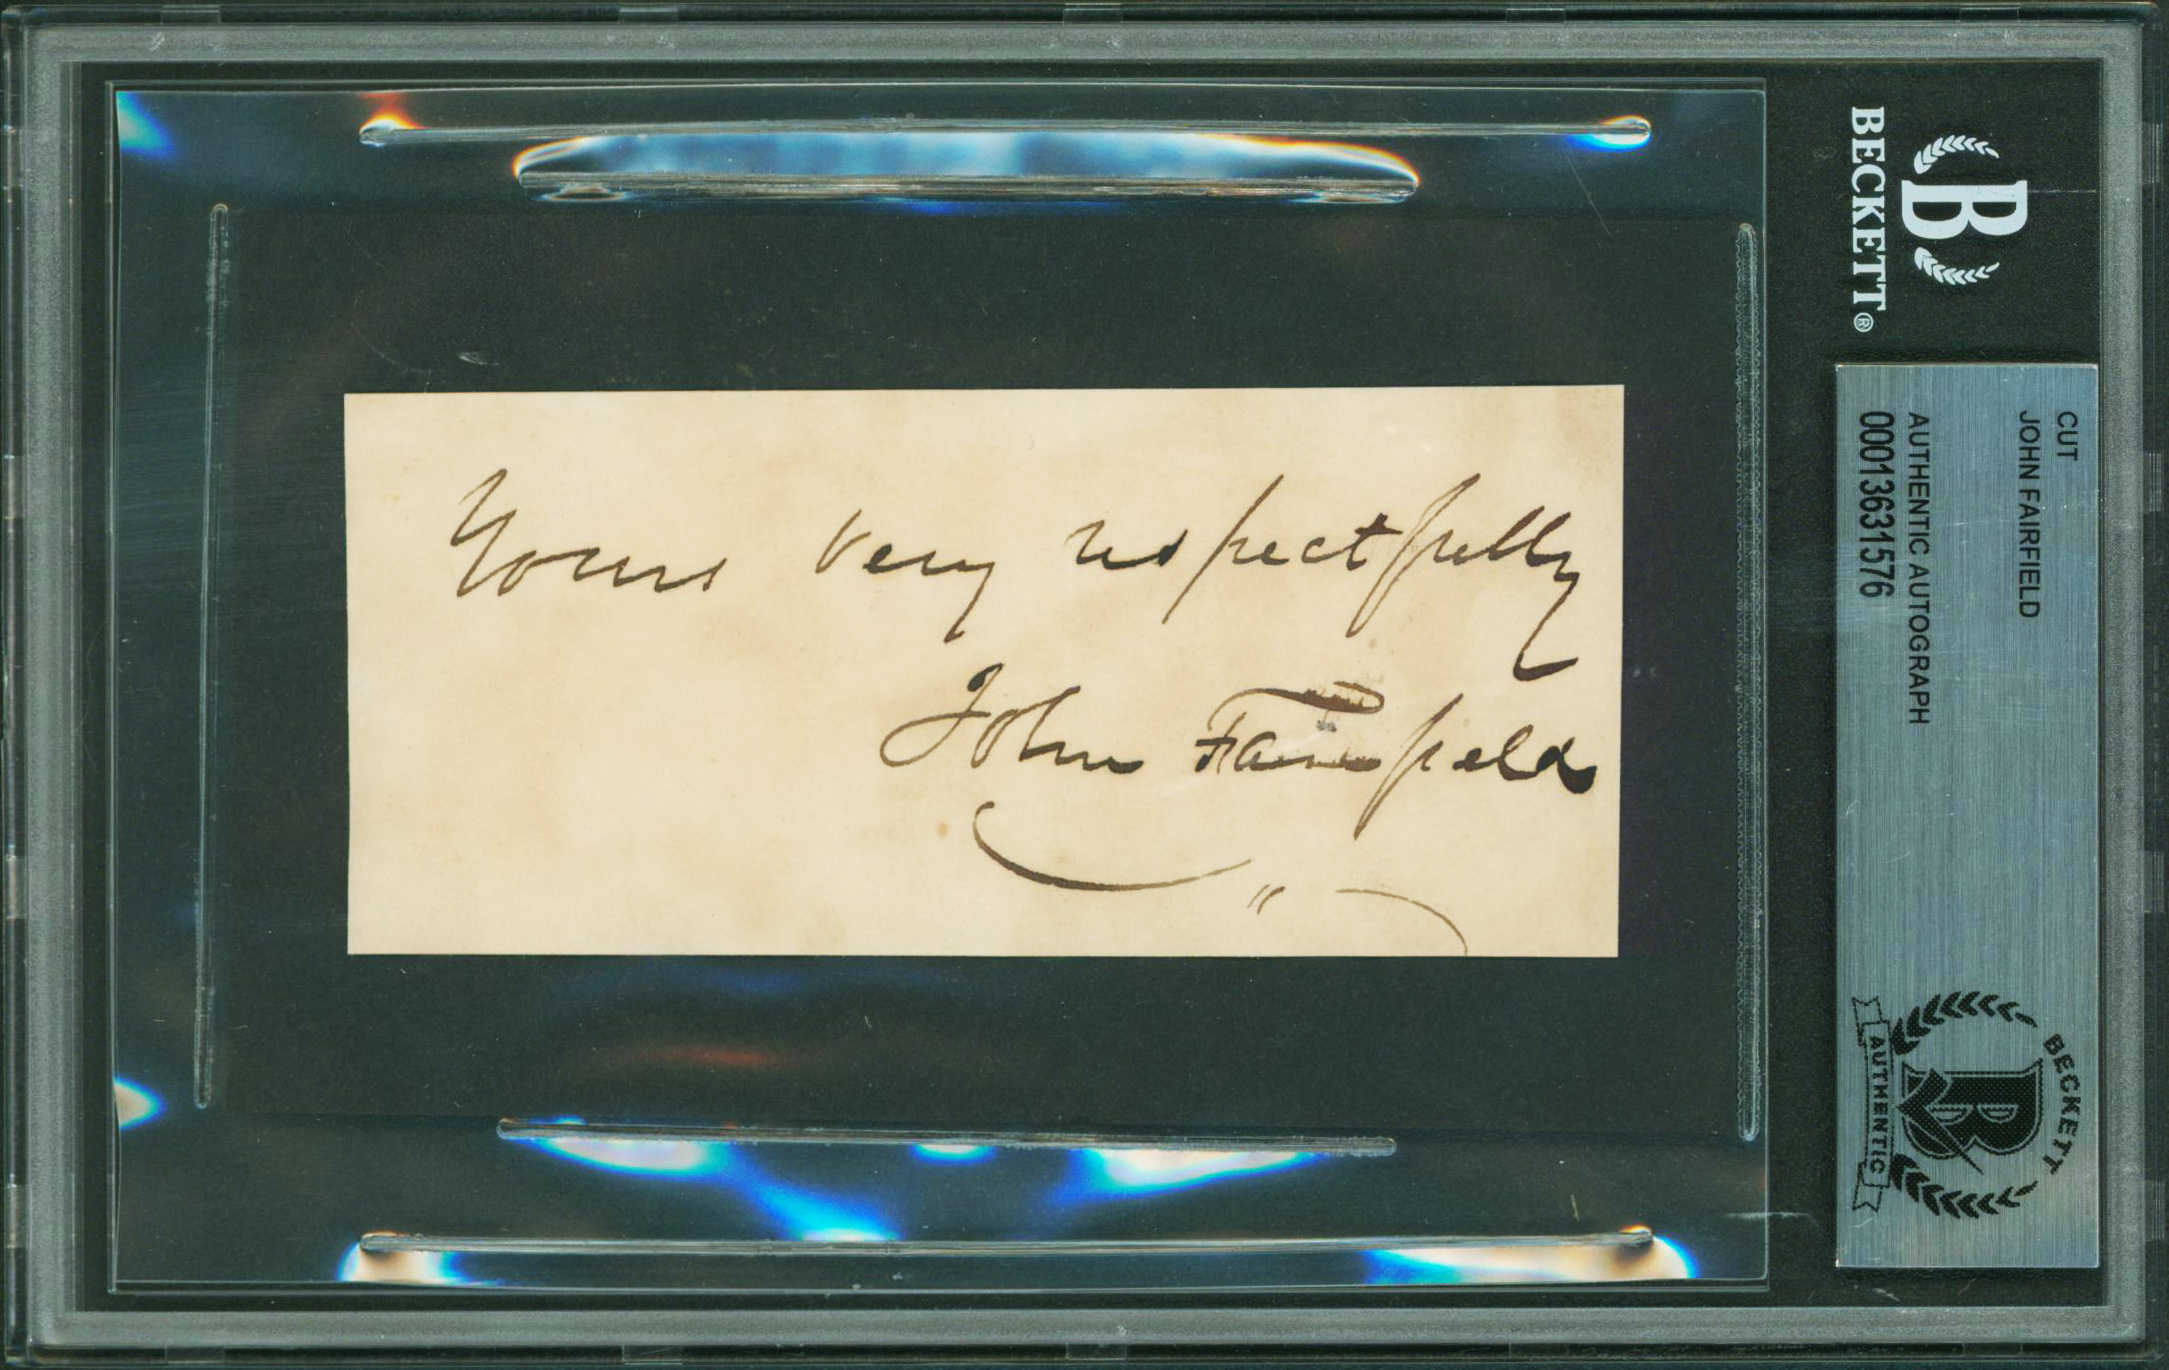 Yours very respectfully
John Fairfield
BECKETT®
B
CUT
JOHN FAIRFIELD
AUTHENTIC AUTOGRAPH
00013631576
BECKETT
B
AUTHENTIC